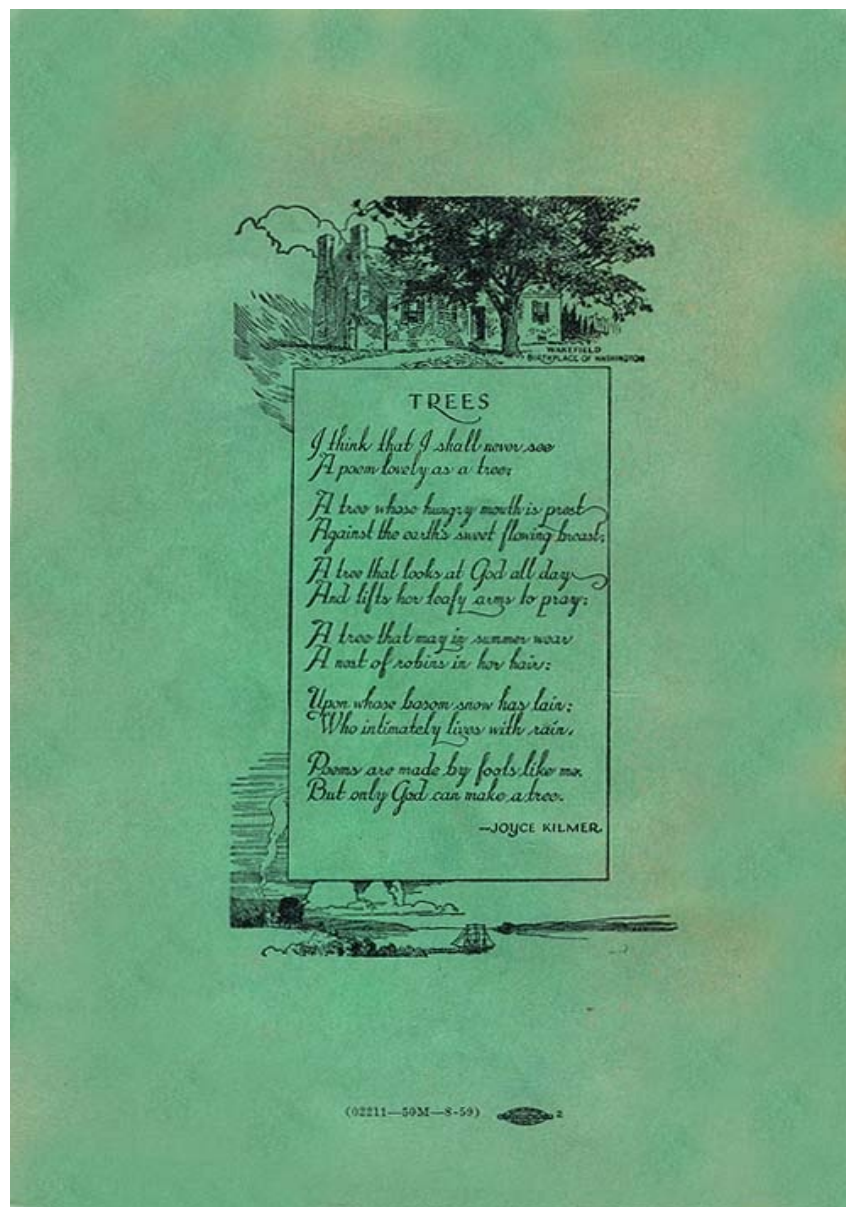 WAKEFIELD
BIRTHPLACE OF WASHINGTON
TREES
I think that I shall never see
A poem lovely as a tree;
A tree whose hungry mouth is prest
Against the earth's sweet flowing breast;
A tree that looks at God all day
And lifts her leafy arms to pray;
A tree that may in summer wear
A nest of robins in her hair;
Upon whose bosom snow has lain;
Who intimately lives with rain.
Poems are made by fools like me,
But only God can make a tree.
—JOYCE KILMER
(02211—50M—8-59)
2